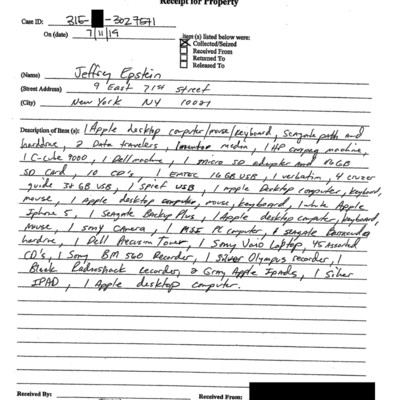 Receipt for Property
Case ID: 31E- -3027571
On (date) 7/11/19
Item(s) listed below were:
Collected/Seized
Received From
Returned To
Released To
(Name) Jeffrey Epstein
(Street Address) 9 East 71st Street
(City) New York NY 10021
Description of Item(s): 1 Apple desktop computer/mouse/keyboard, Seagate and
hardrive, 2 Data travelers, media, 1 HP compaq machine,
1 C-cube 9000, 1 Dell machine, 1 micro SD adapter and 16GB
SD Card, 10 CD's, 1 EMTEC 16 GB USB, 1 verbatim, 4 cruzer
guide 32 GB USB, 1 USB, 1 Apple Desktop computer, keyboard,
mouse, 1 Apple desktop computer, mouse, keyboard, 1 white Apple
Iphone 5, 1 Seagate Backup Plus, 1 Apple desktop computer, keyboard,
mouse, 1 Sony Camera, 1 PC computer, Seagate Barracuda
hardrive, 1 Dell Precision Tower, 1 Sony Vaio Laptop, 45 Assorted
CD's, 1 Sony BM 560 Recorder, 1 Silver Olympus recorder, 1
Black Radioshack recorder, 2 Gray Apple Ipads, 1 Silver
IPAD, 1 Apple desktop computer.
Received By:
Received From: